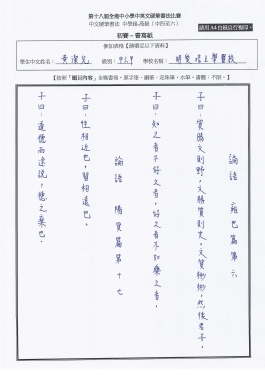 第十八屆全港中小學中英文硬筆書法比賽
中文硬筆書法 中學組-高級（中四至六）
請用A4白紙自行影印。
初賽 - 書寫紙
參加表格【請填妥以下資料】
學生中文姓名： 黃潔兒 學校名稱：
【按照「題目內容」全篇書寫，原子筆、鋼筆、走珠筆、水筆，書體：不限。】
論語 雍也篇第六
子曰：質勝文則野，文勝質則史。文質彬彬，然後君子。
子曰：知之者不如好之者，好之者不如樂之者。
論語 陽貨篇第十七
子曰：性相近也，習相遠也。
子曰：道聽而途說，德之棄也。